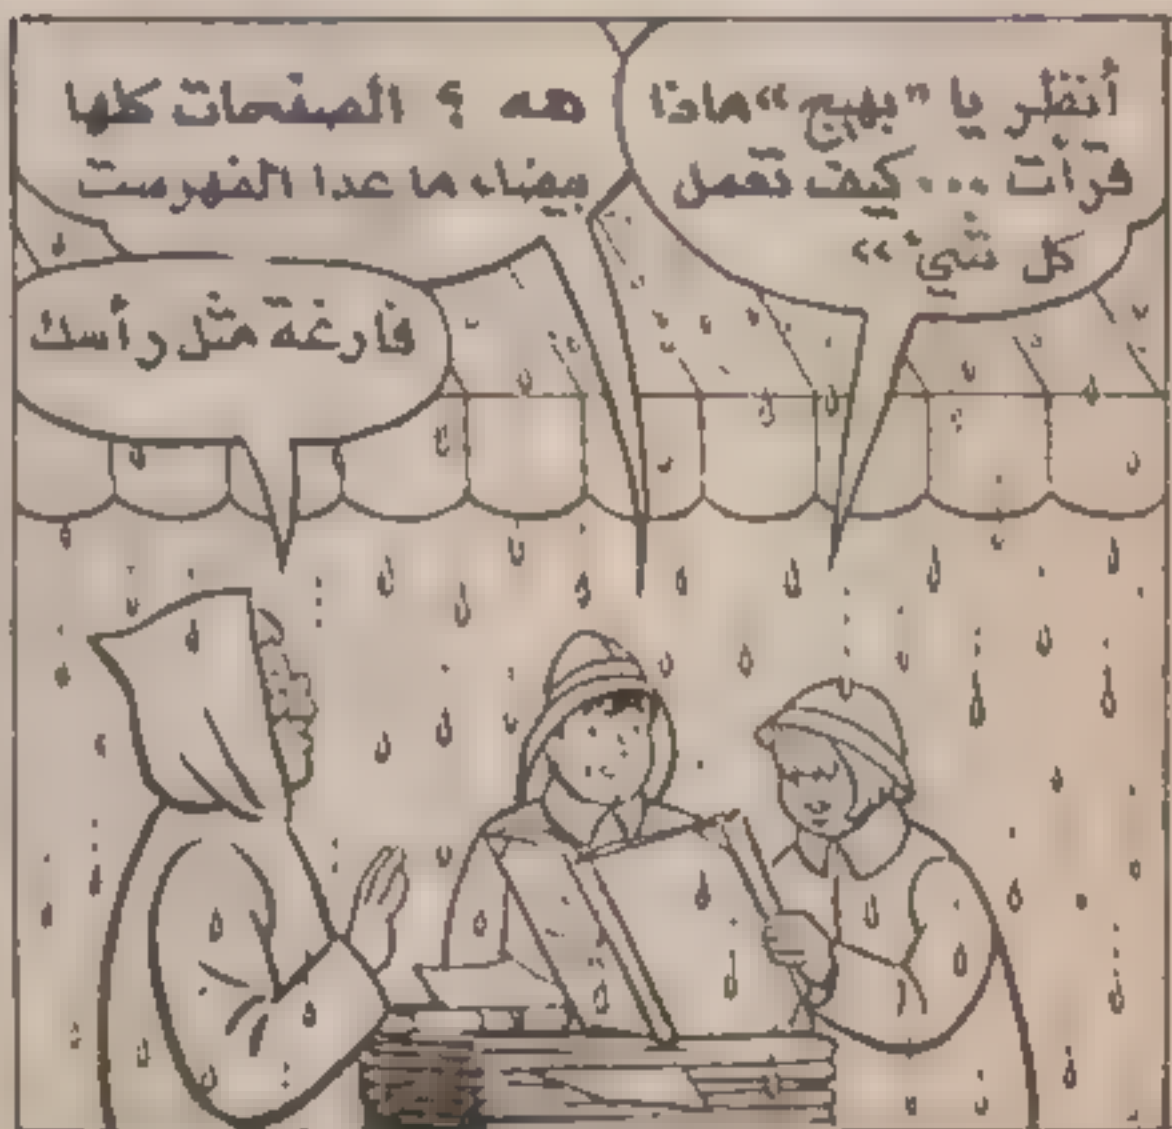 أنظر يا "بهيج" ماذا
قرأت ... كيف تعمل
كل شيء»
هه ؟ الصفحات كلها
بيضاء ما عدا الفهرست
فارغة مثل رأسك